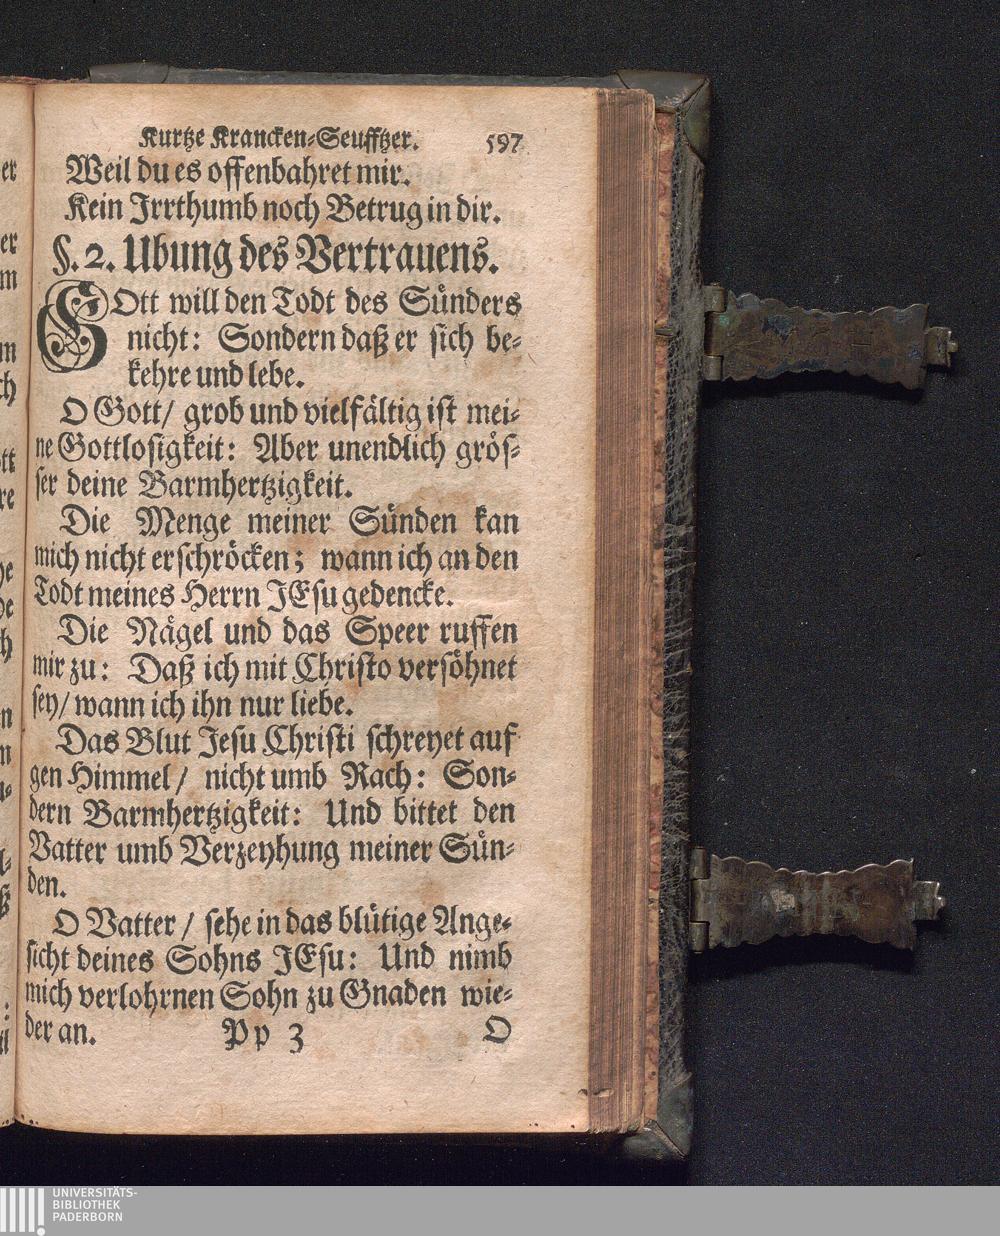 Kurtze Krancken-Seufftzer. 597
Weil du es offenbahret mir.
Kein Irrthumb noch Betrug in dir.
§. 2. Ubung des Vertrauens.
GOtt will den Todt des Sünders
nicht: Sondern daß er sich be-
kehre und lebe.
O Gott / grob und vielfältig ist mei-
ne Gottlosigkeit: Aber unendlich grös-
ser deine Barmhertzigkeit.
Die Menge meiner Sünden kan
mich nicht erschröcken; wann ich an den
Todt meines Herrn JEsu gedencke.
Die Nägel und das Speer ruffen
mir zu: Daß ich mit Christo versöhnet
sey / wann ich ihn nur liebe.
Das Blut Jesu Christi schreyet auf
gen Himmel / nicht umb Rach: Son-
dern Barmhertzigkeit: Und bittet den
Vatter umb Verzeyhung meiner Sün-
den.
O Vatter / sehe in das blütige Ange-
sicht deines Sohns JEsu: Und nimb
mich verlohrnen Sohn zu Gnaden wie-
der an. Pp 3 O
UNIVERSITÄTS-
BIBLIOTHEK
PADERBORN